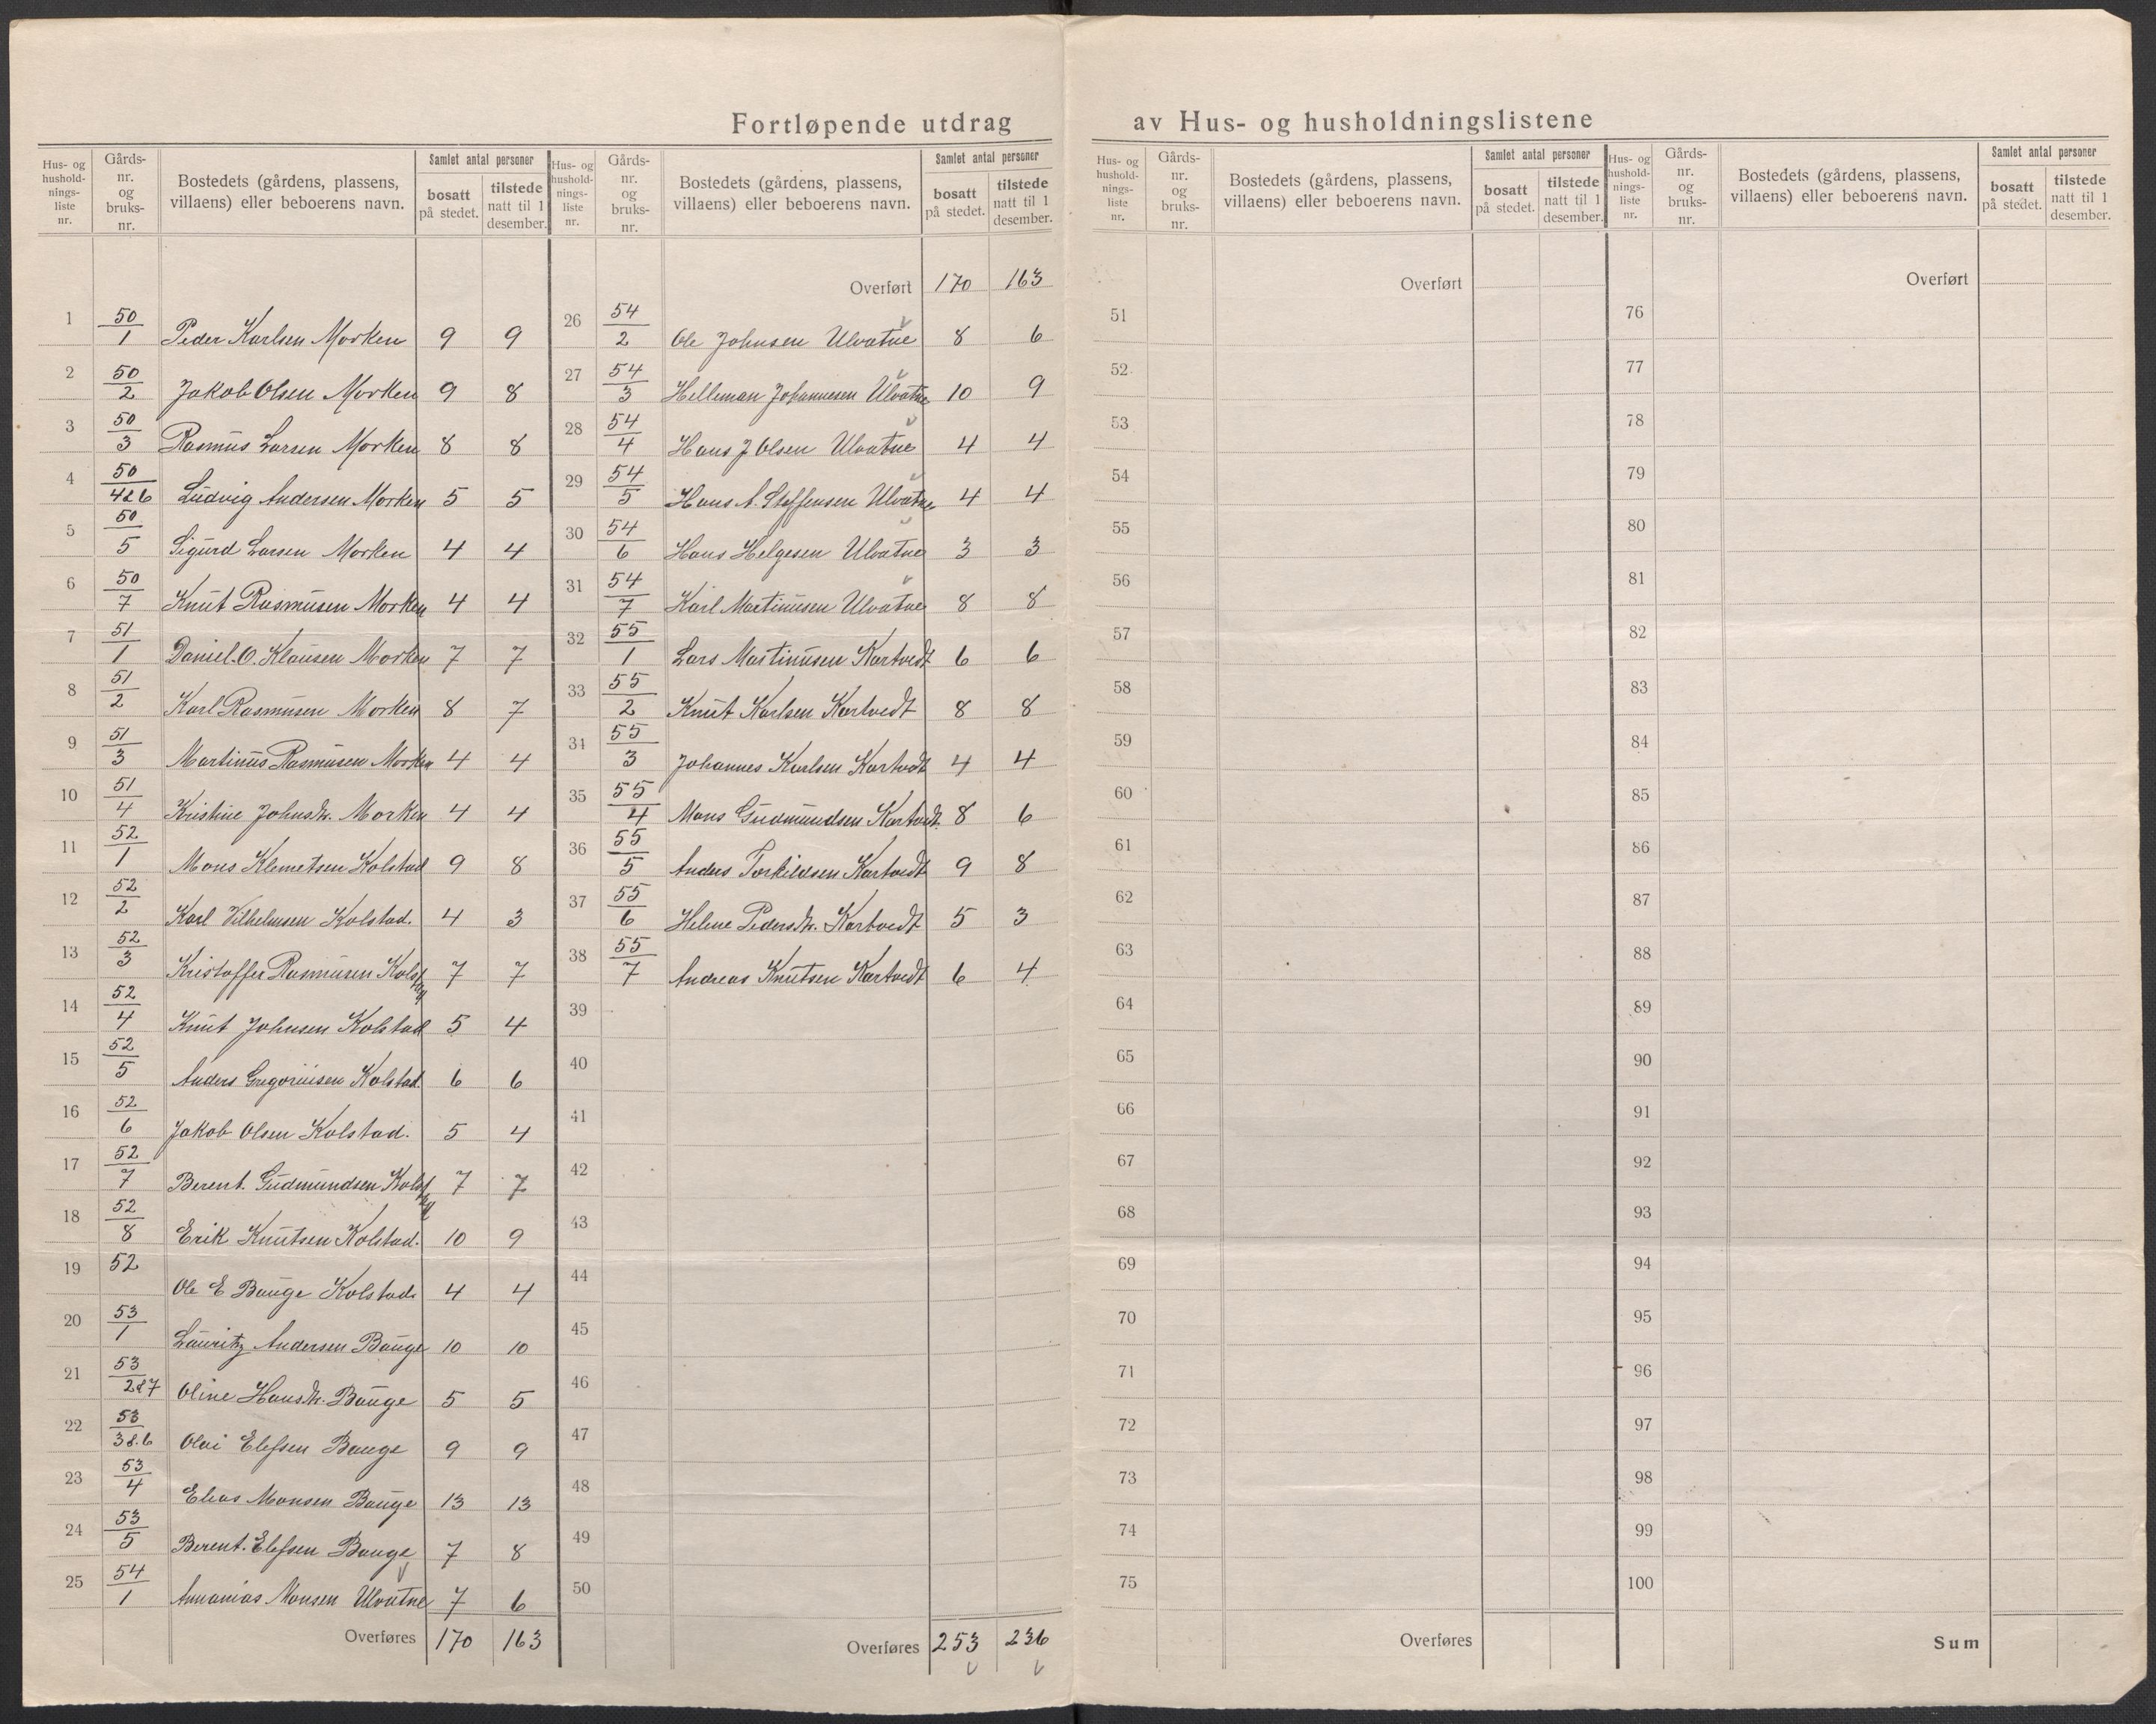 Fortløpende utdrag av Hus- og husholdningslistene
Hus- og husholdningsliste nr. | Gårds- nr. og bruks- nr. | Bostedets (gårdens, plassens, villaens) eller beboerens navn. | Samlet antal personer bosatt på stedet. | tilstede natt til 1 desember.
1 50/1 Peder Karlsen Morken 9 9
2 50/2 Jakob Olsen Morken 9 8
3 50/3 Rasmus Larsen Morken 8 8
4 50/4&6 Ludvig Andersen Morken 5 5
5 50/5 Sigurd Larsen Morken 4 4
6 50/7 Knut Rasmusen Morken 4 4
7 51/1 Daniel. O. Klausen Morken 7 7
8 51/2 Karl Rasmusen Morken 8 7
9 51/3 Martinus Rasmusen Morken 4 4
10 51/4 Kristine Johnsdtr. Morken 4 4
11 52/1 Mons Klemetsen Kolstad 9 8
12 52/2 Karl Vilhelmsen Kolstad. 4 3
13 52/3 Kristoffer Rasmusen Kolstad 7 7
14 52/4 Knut Johnsen Kolstad 5 4
15 52/5 Anders Gregoriusen Kolstad. 6 6
16 52/6 Jakob Olsen Kolstad. 5 4
17 52/7 Berent. Gudmundsen Kolstad 7 7
18 52/8 Erik Knutsen Kolstad. 10 9
19 52 Ole E Bauge Kolstad. 4 4
20 53/1 Lauritz Andersen Bauge 10 10
21 53/2&7 Oline Hansdtr. Bauge 5 5
22 53/3&6 Olai Elefsen Bauge 9 9
23 53/4 Elias Monsen Bauge 13 13
24 53/5 Berent. Elefsen Bauge 7 8
25 54/1 Annanias Monsen Ulvatne 7 6
Overføres 170 163
Hus- og husholdningsliste nr. | Gårds- nr. og bruks- nr. | Bostedets (gårdens, plassens, villaens) eller beboerens navn. | Samlet antal personer bosatt på stedet. | tilstede natt til 1 desember.
Overført 170 163
26 54/2 Ole Johnsen Ulvatne 8 6
27 54/3 Helleman Johannesen Ulvatne 10 9
28 54/4 Hans J Olsen Ulvatne 4 4
29 54/5 Hans A. Steffensen Ulvatne 4 4
30 54/6 Hans Helgesen Ulvatne 3 3
31 54/7 Karl Martinusen Ulvatne 8 8
32 55/1 Lars Martinusen Kartvedt 6 6
33 55/2 Knut Karlsen Kartvedt 8 8
34 55/3 Johannes Karlsen Kartvedt 4 4
35 55/4 Mons Gudmundsen Kartvedt. 8 6
36 55/5 Anders Torkildsen Kartvedt 9 8
37 55/6 Helene Pedersdtr. Kartvedt 5 3
38 55/7 Andreas Knutsen Kartvedt 6 4
39
40
41
42
43
44
45
46
47
48
49
50
Overføres 253 236
Hus- og husholdningsliste nr. | Gårds- nr. og bruks- nr. | Bostedets (gårdens, plassens, villaens) eller beboerens navn. | Samlet antal personer bosatt på stedet. | tilstede natt til 1 desember.
Overført
51
52
53
54
55
56
57
58
59
60
61
62
63
64
65
66
67
68
69
70
71
72
73
74
75
Overføres
Hus- og husholdningsliste nr. | Gårds- nr. og bruks- nr. | Bostedets (gårdens, plassens, villaens) eller beboerens navn. | Samlet antal personer bosatt på stedet. | tilstede natt til 1 desember.
Overført
76
77
78
79
80
81
82
83
84
85
86
87
88
89
90
91
92
93
94
95
96
97
98
99
100
Sum